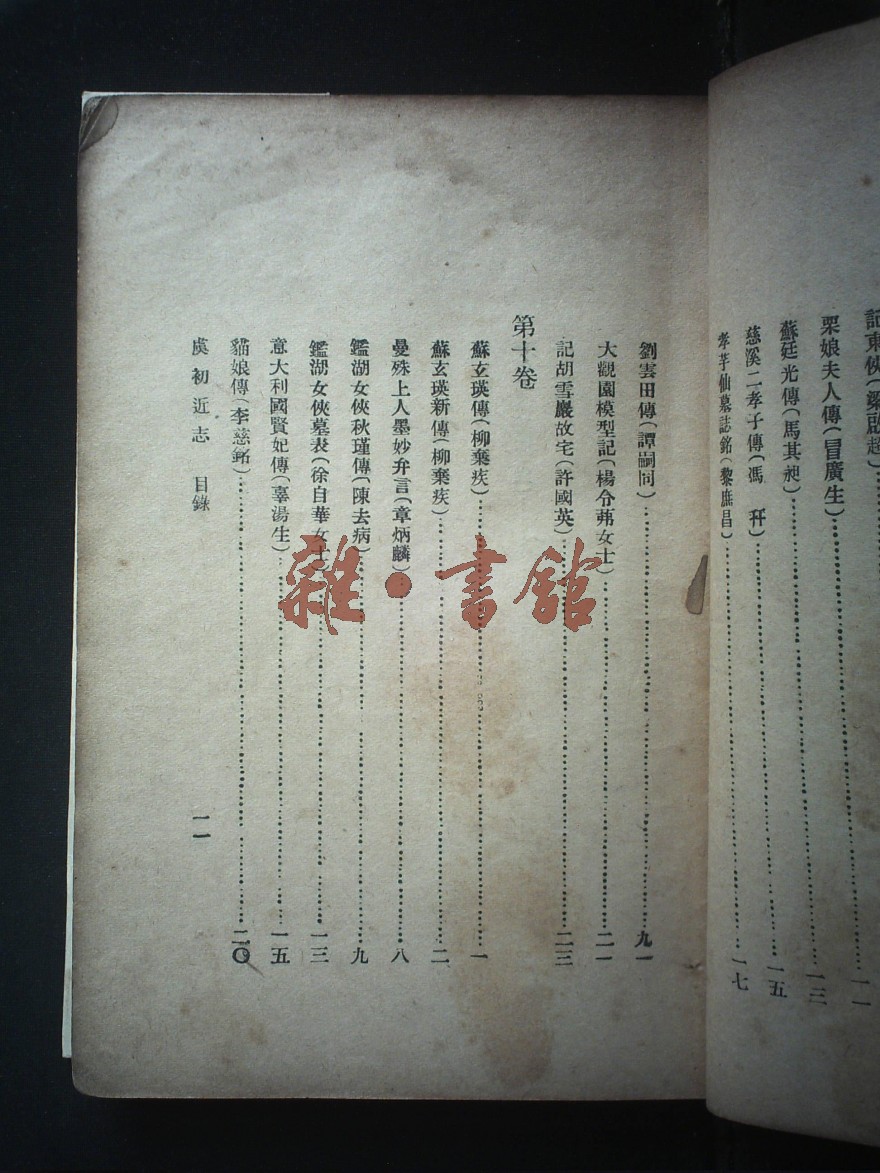 記東俠(梁啟超)……一一
栗娘夫人傳(冒廣生)……一三
蘇廷光傳(馬其昶)……一五
慈溪二孝子傳(馮 幵)
李芋仙墓誌銘(黎庶昌)……一七
劉雲田傳(譚嗣同)……九一
大觀園模型記(楊令茀女士)……二一
記胡雪巖故宅(許國英)……二三
第十卷
蘇玄瑛傳(柳棄疾)……一
蘇玄瑛新傳(柳棄疾)……二
曼殊上人墨妙弁言(章炳麟)……八
鑑湖女俠秋瑾傳(陳去病)……九
鑑湖女俠墓表(徐自華女士)……一三
意大利國賢妃傳(辜湯生)……一五
貓娘傳(李慈銘)……二〇
虞初近志 目錄 一一
雜·書館